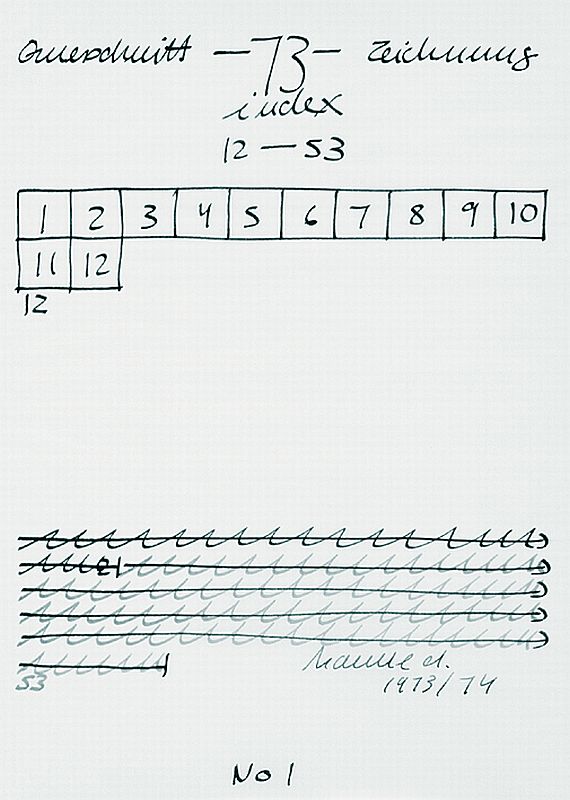 Querschnitt — 73 — Zeichnung
index
12 — 53
1 2 3 4 5 6 7 8 9 10
11 12
12
53
1973/74
No 1